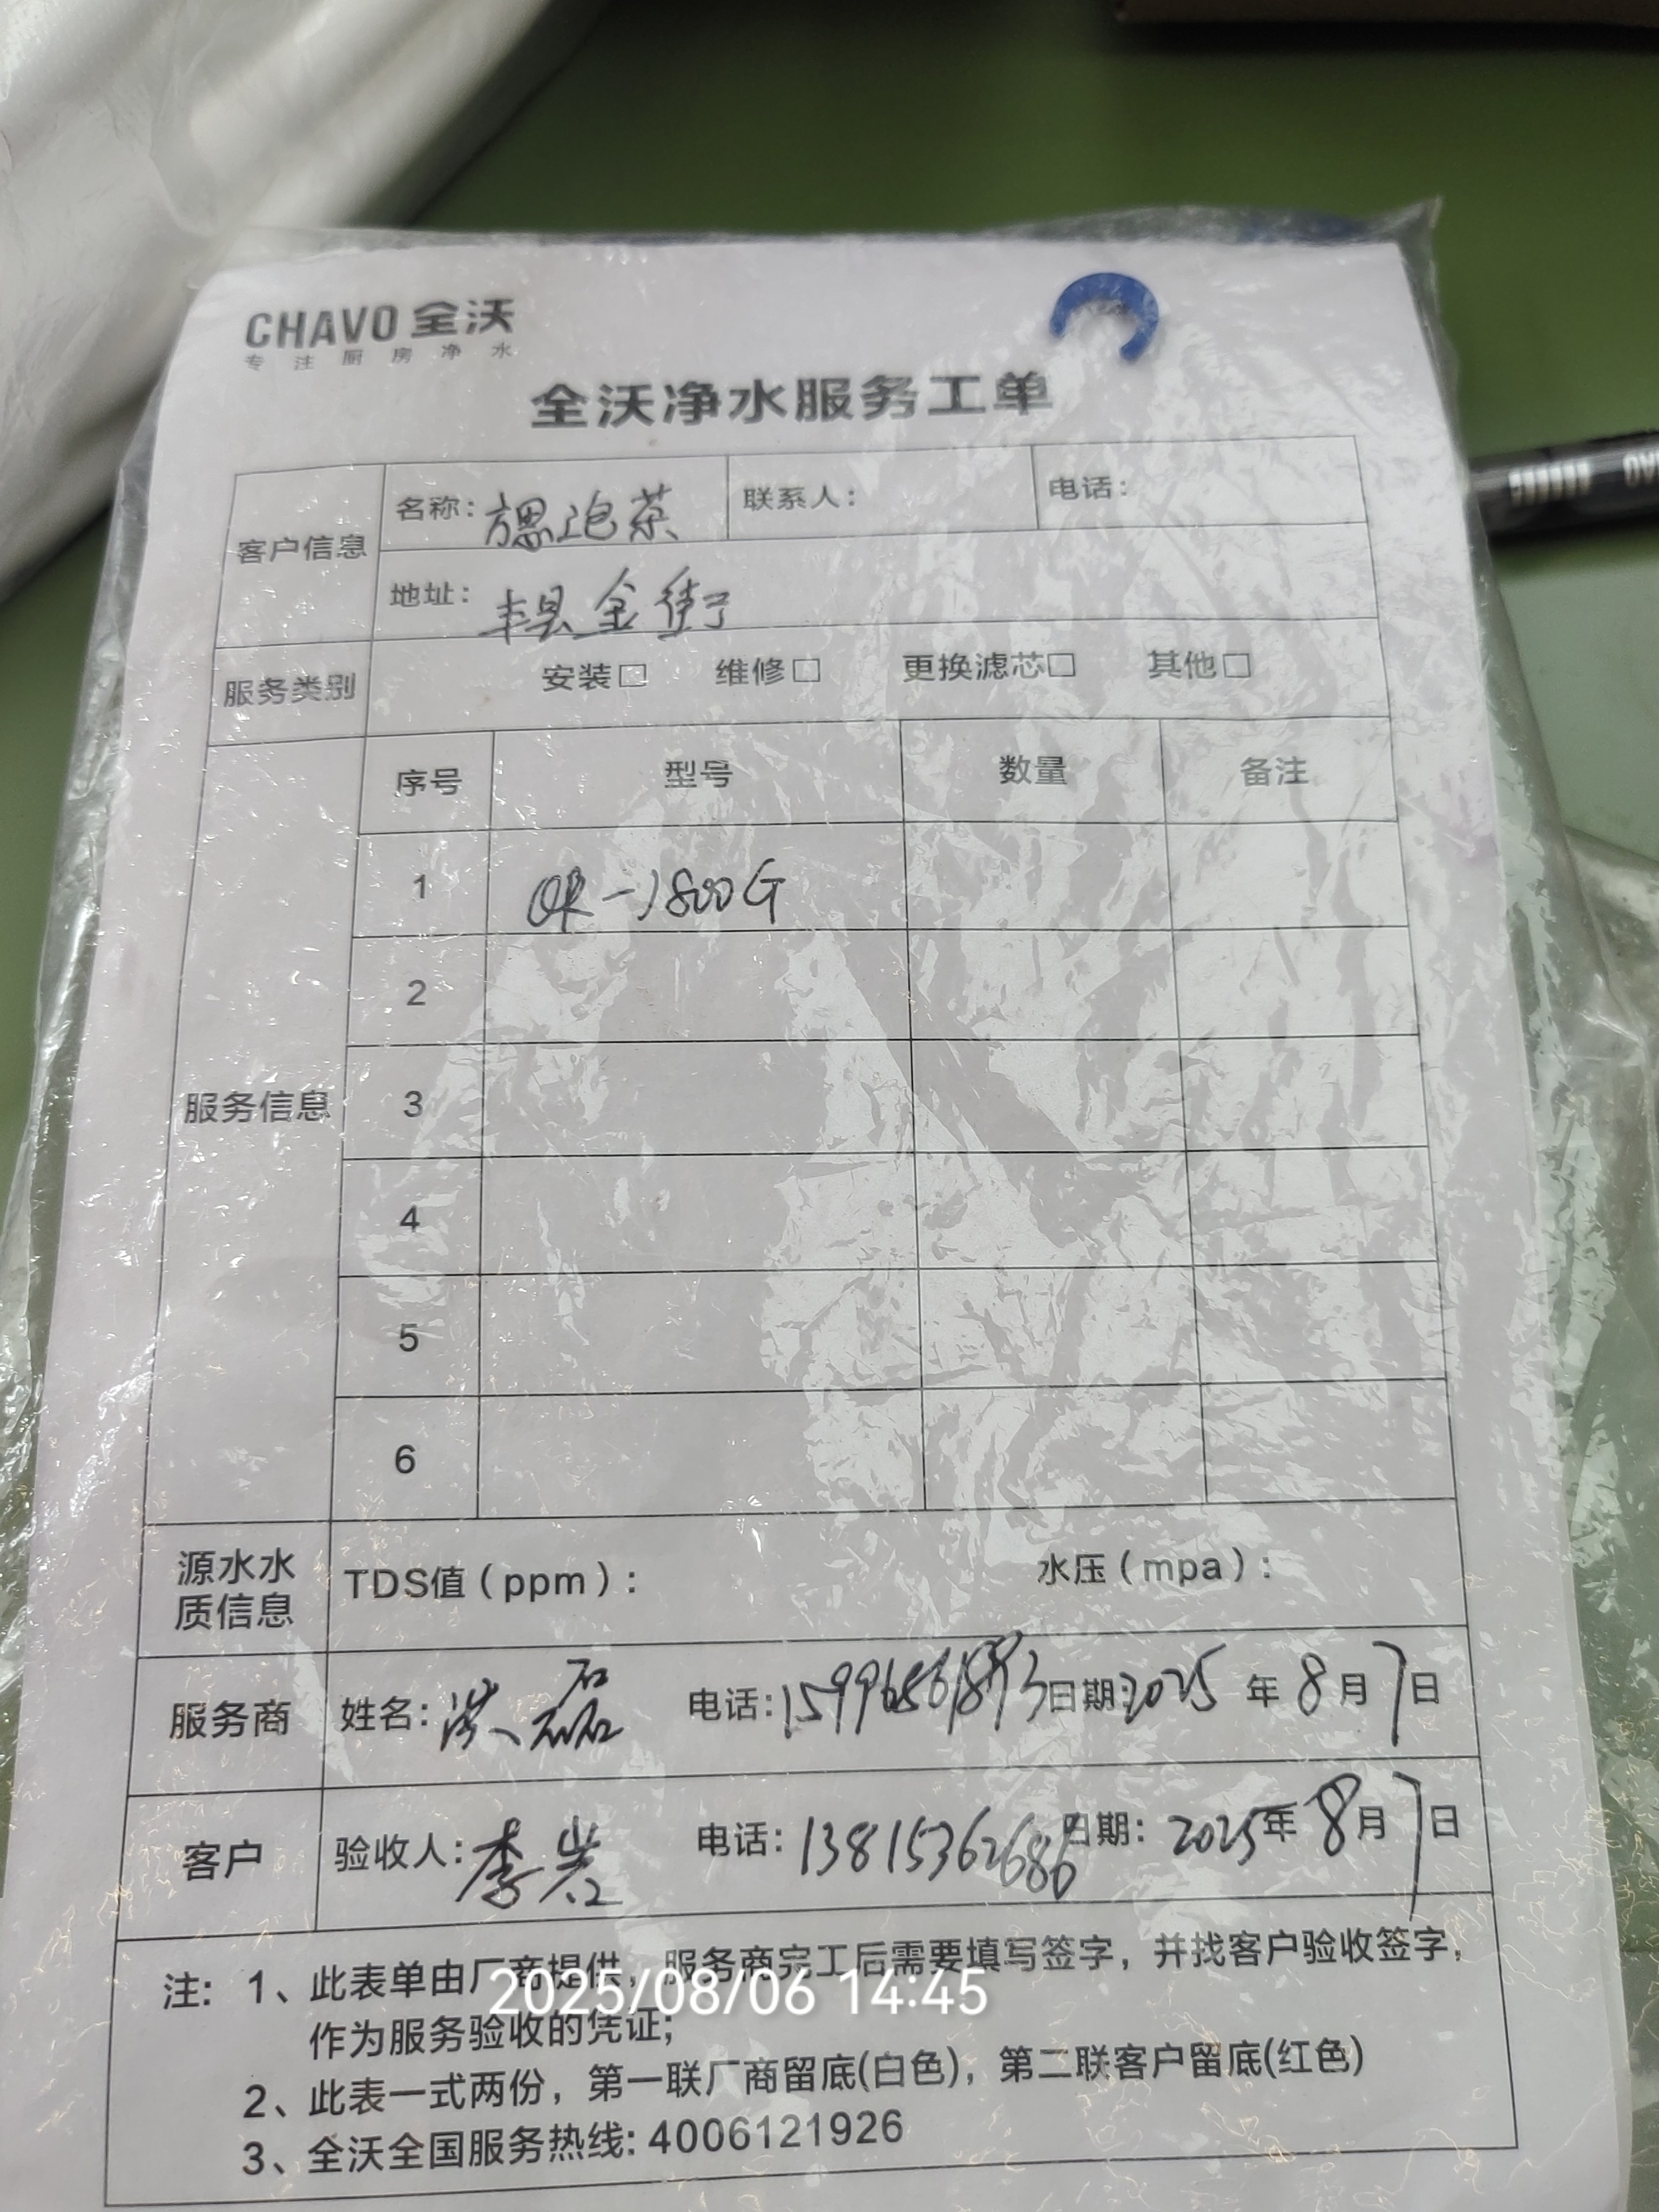 CHAVO 全沃
专注厨房净水
全沃净水服务工单
客户信息 名称: 泡茶 联系人: 电话:
地址: 丰县金街
服务类别 安装□ 维修□ 更换滤芯□ 其他□
服务信息 序号 型号 数量 备注
1 -1800G
2
3
4
5
6
源水水质信息 TDS值(ppm): 水压(mpa):
服务商 姓名: 洪磊 电话: 日期: 2025年8月7日
客户 验收人: 李岩 电话: 13815362686 日期: 2025年8月7日
注: 1、此表单由厂商提供, 服务商完工后需要填写签字, 并找客户验收签字,
作为服务验收的凭证;
2025/08/06 14:45
2、此表一式两份, 第一联厂商留底(白色), 第二联客户留底(红色)
3、全沃全国服务热线: 4006121926